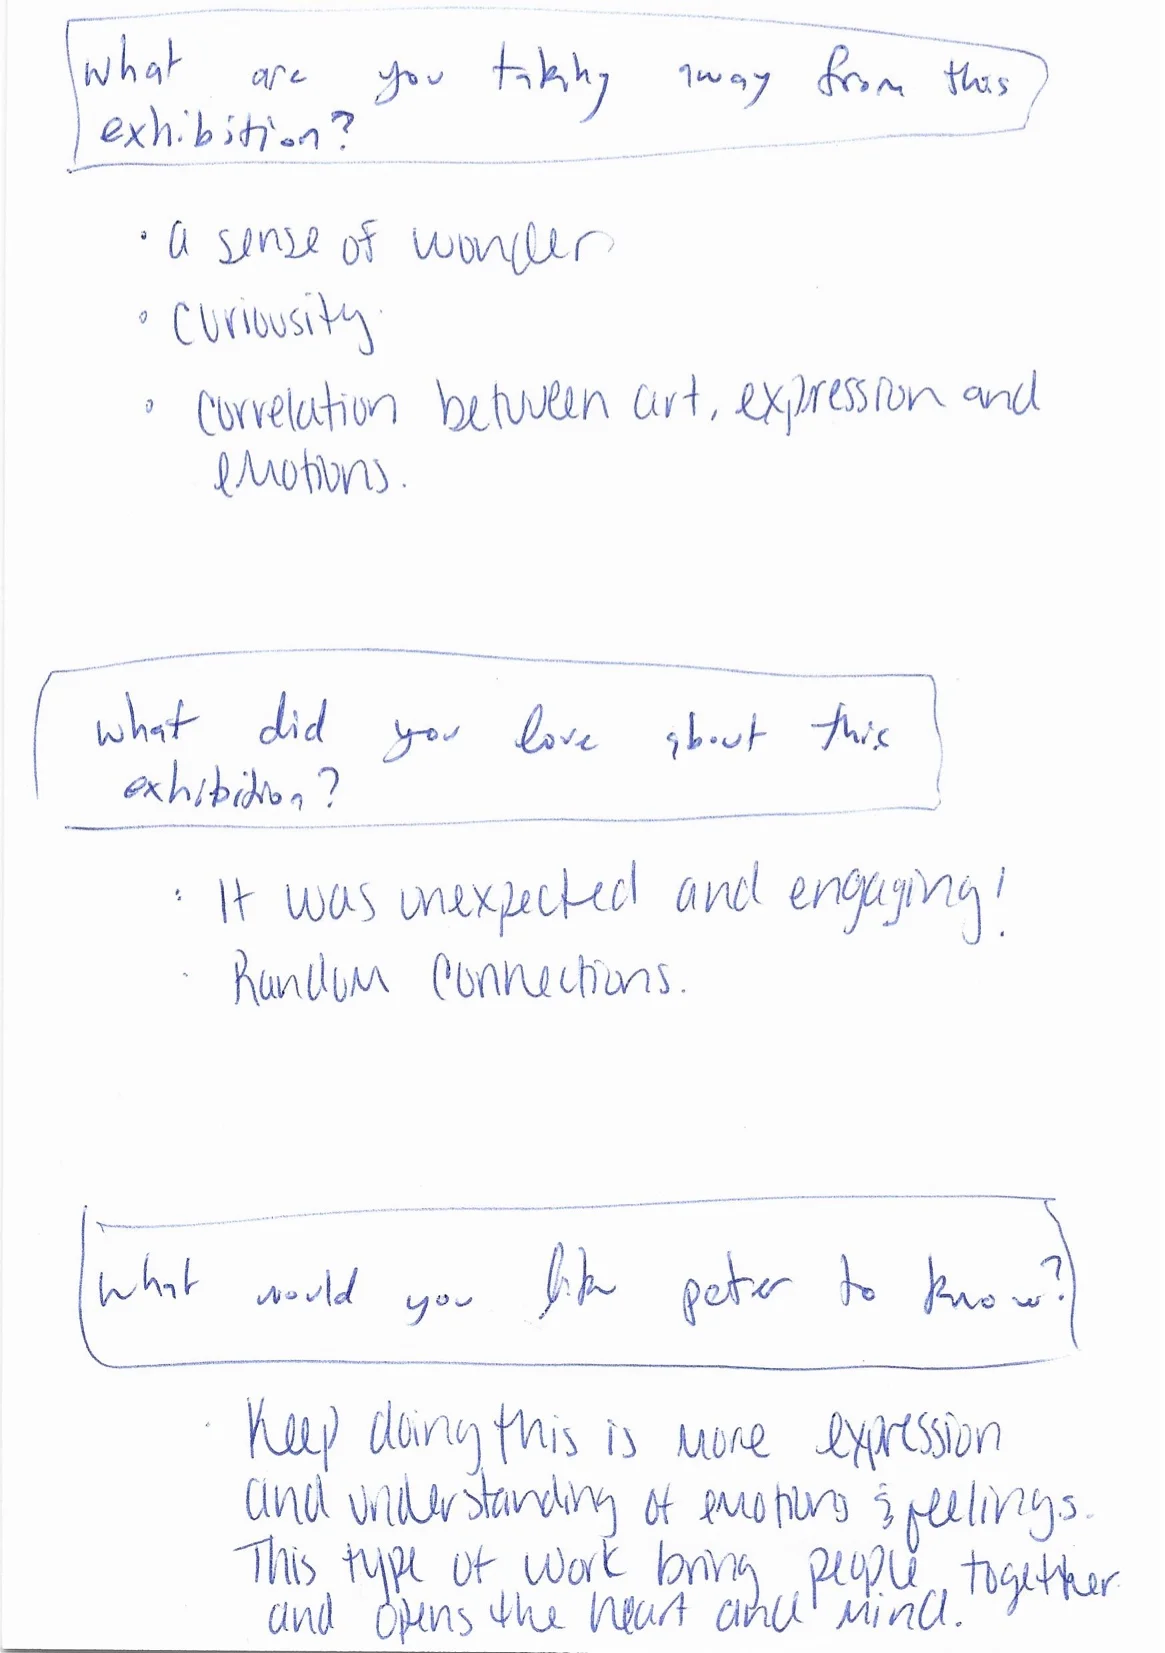 what are you taking away from this
exhibition?
• a sense of wonder
• curiousity.
• correlation between art, expression and
emotions.
what did you love about this
exhibition?
• It was unexpected and engaging!
• Random connections.
what would you like peter to know?
• Keep doing this is more expression
and understanding of emotions & feelings.
This type of work bring people together
and opens the heart and mind.